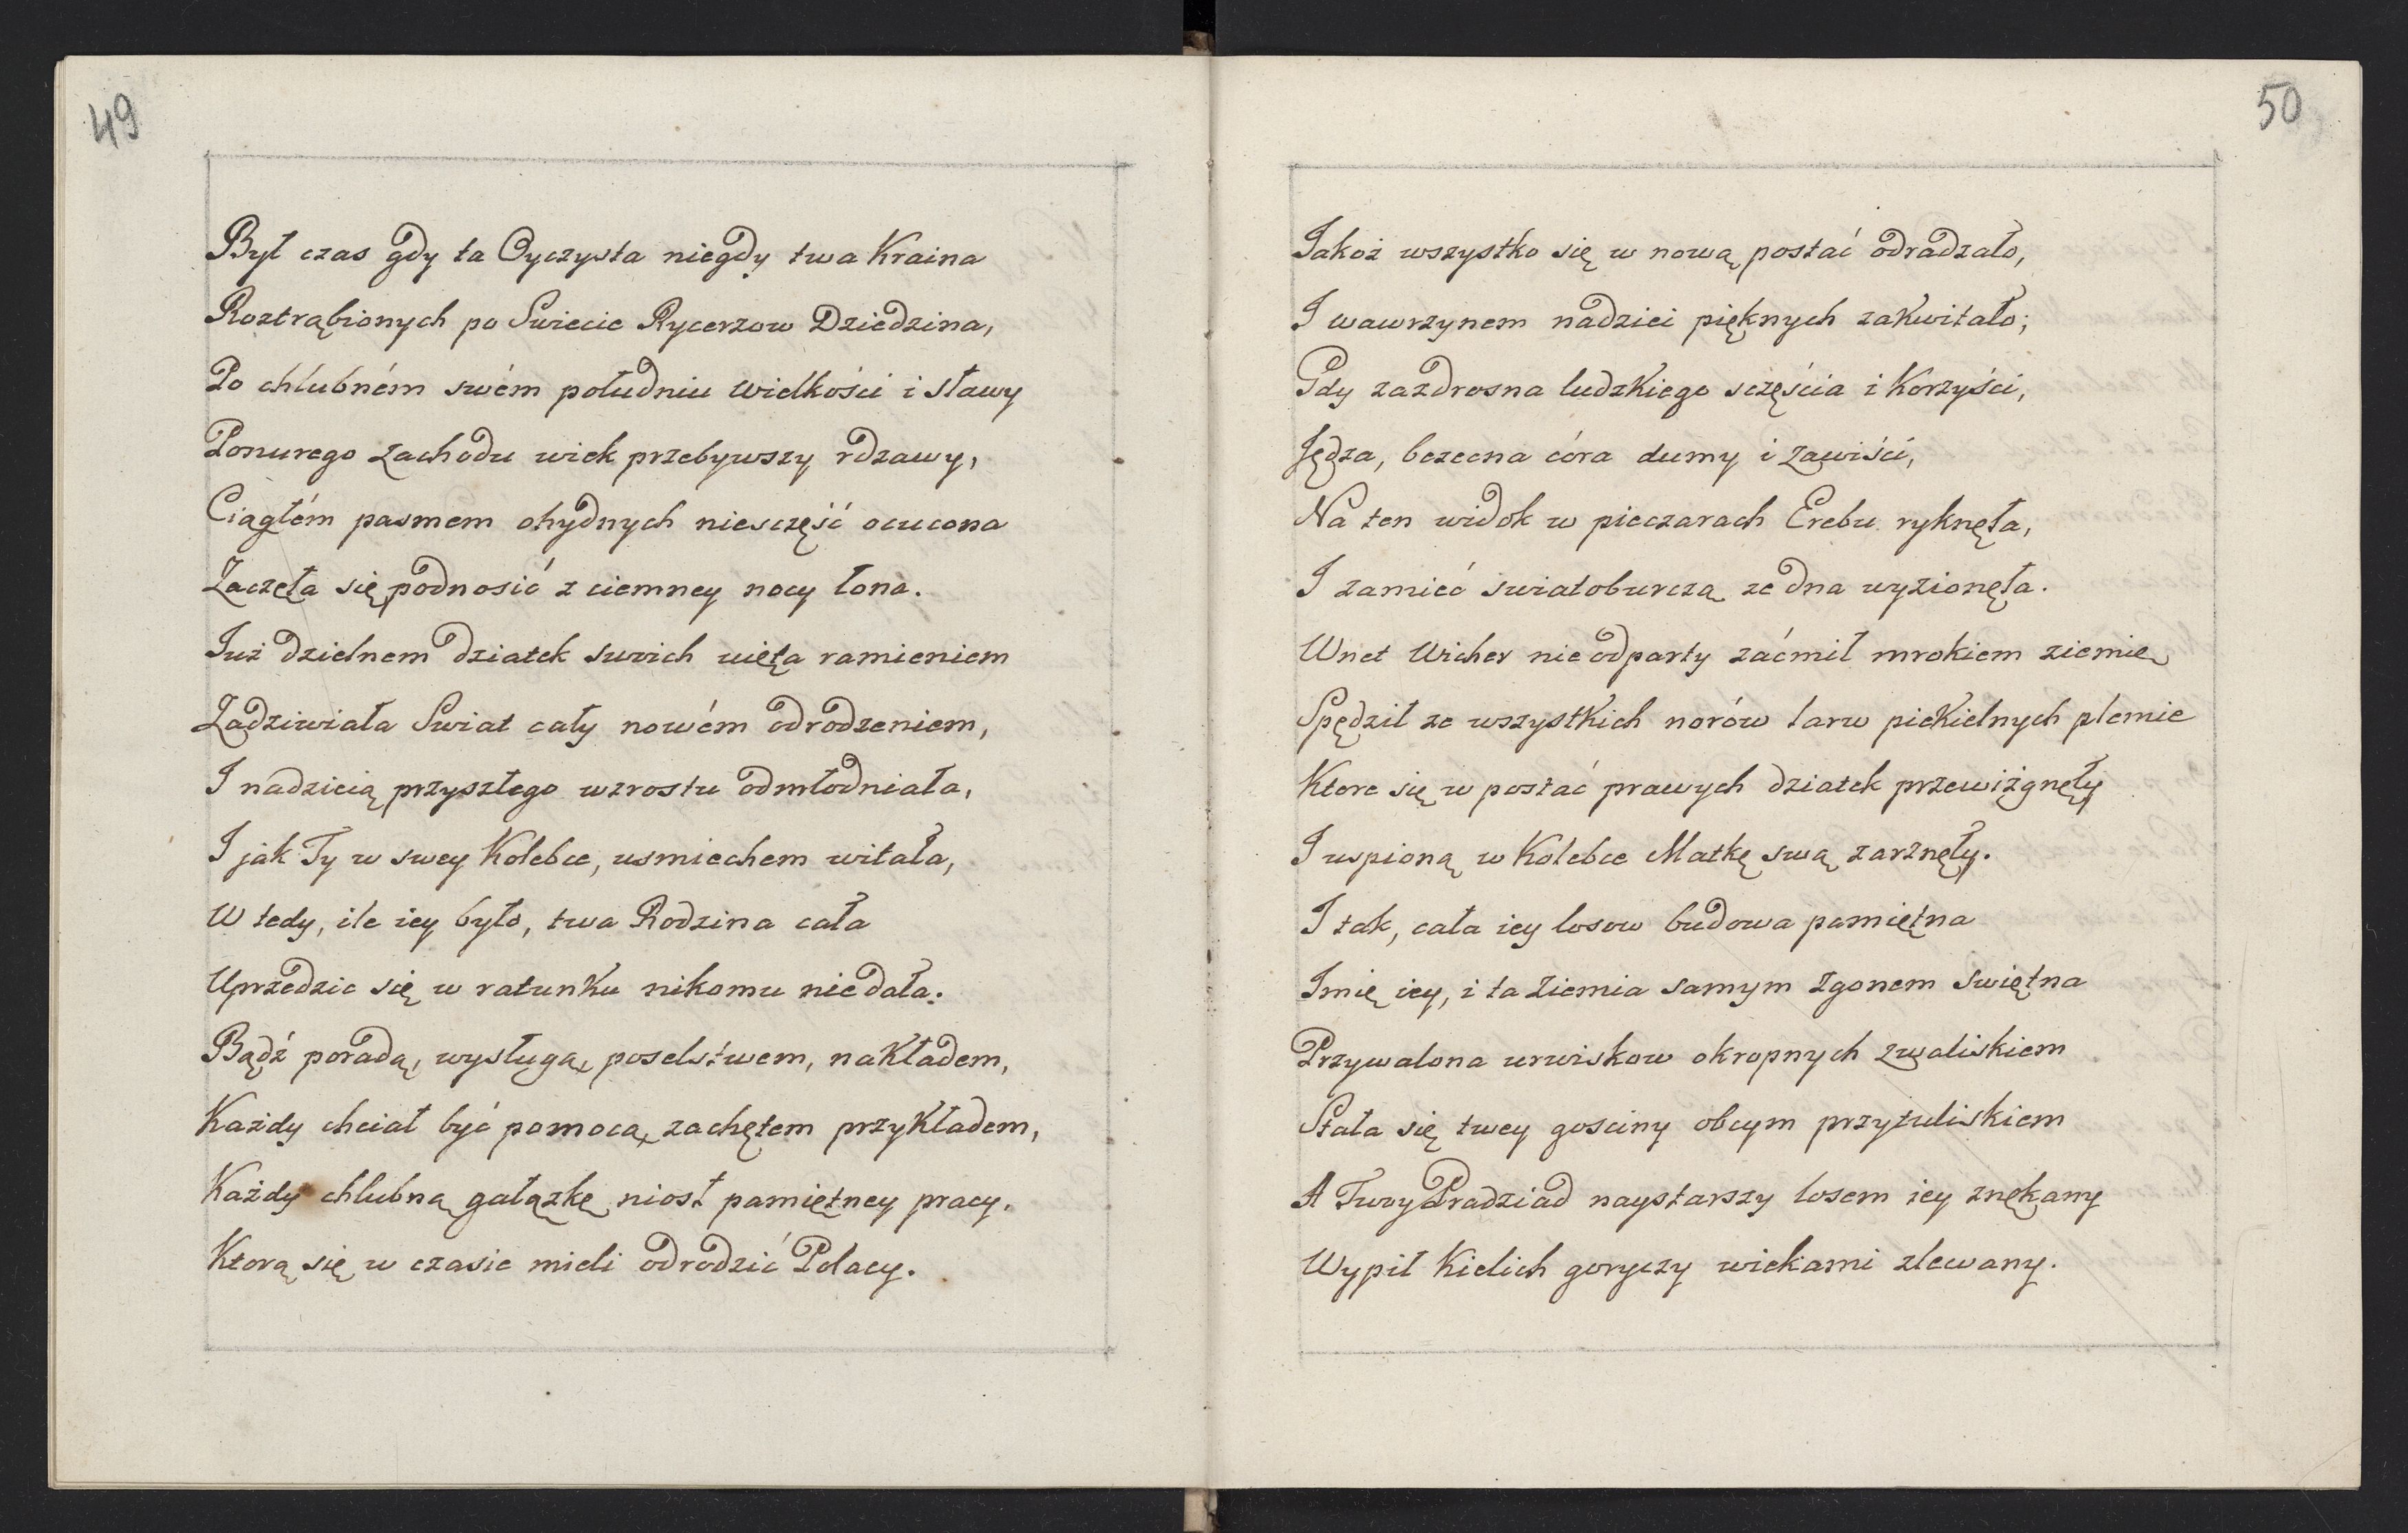 49
Był czas gdy ta Oyczysta niegdy twa Kraina
Roztrąbionych po Swiecie Rycerzow Dziedzina,
Po chlubném swém południu wielkości i sławy
Ponurego zachodu wiek przebywszy rdzawy,
Ciągłém pasmem ohydnych niesczęść ocucona
Zaczęła się podnosić z ciemney nocy łona.
Iuż dzielnem dziatek swoich uięta ramieniem
Zadziwiała Swiat cały nowém odrodzeniem,
I nadzieią przyszłego wzrostu odmłodniała,
I jak Ty w swey Kolebce, usmiechem witała,
W tedy, ile iey było, twa Rodzina cała
Uprzedzic się w ratunku nikomu nie dała:
Bądź poradą, wysługą, poselstwem, nakładem,
Każdy chciał być pomocą, zachętem przykładem,
Każdy chlubną gałązkę niosł pamiętney pracy,
Ktorą się w czasie mieli odrodzić Polacy.
50
Iakoż wszystko się w nową postać odradzało,
I wawrzynem nadziei pięknych zakwitało;
Gdy zazdrosna ludzkiego sczęścia i Korzyści,
Jędza, bezecna córa dumy i zawiści,
Na ten widok w pieczarach Erebu ryknęła,
I zamieć swiatoburczą ze dna wyzionęła.
Wnet Wicher nieodparty zaćmił mrokiem ziemię
Spędził ze wszystkich norów larw piekielnych plemie
Ktore się w postać prawych dziatek przewiżgnęły
I uspioną w Kolebce Matkę swą zarznęły.
I tak, cała iey losow budowa pamiętna
Imię iey, i ta Ziemia samym Zgonem swiętna
Przywalona urwiskow okropnych zwaliskiem
Stała się twey gosciny obcym przytuliskiem
A Twoy Pradziad naystarszy losem iey znękany
Wypił Kielich goryczy wiekami zlewany.